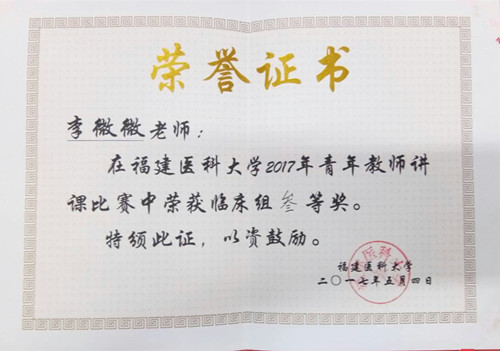 荣誉证书
李微微老师：
在福建医科大学2017年青年教师讲
课比赛中荣获临床组叁等奖。
特颁此证，以资鼓励。
福建医科大学
二〇一七年五月四日